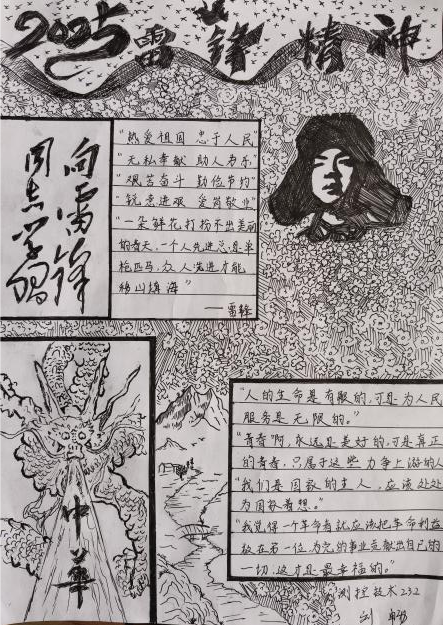 2025雷锋精神
向雷锋
同志学习
"热爱祖国 忠于人民"
"无私奉献 助人为乐"
"艰苦奋斗 勤俭节约"
"锐意进取 爱岗敬业"
"一朵鲜花打扮不出美丽
的春天,一个人先进总是单
枪匹马,众人先进才能
移山填海"
——雷锋
中华
"人的生命是有限的,可是为人民
服务是无限的。"
"青春啊,永远是美好的,可是真正
的青春,只属于这些力争上游的人
"我们是国家的主人,应该处处
为国家着想。"
"我觉得一个革命者就应该把革命利益
放在第一位,为党的事业贡献出自己的
一切,这才是最幸福的。"
测控技术232
刘